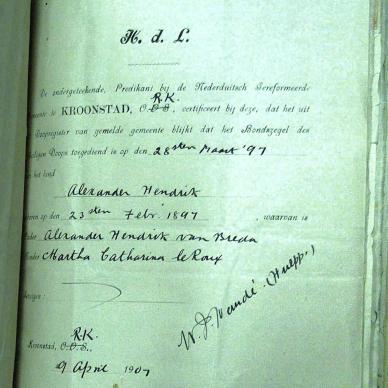 H. d. L.
De ondergeteekende, Predikant bij de Nederduitsch Gereformeerde
R.K.
Gemeente te KROONSTAD, O.V.S., certificeert bij deze, dat het uit
Doopregister van gemelde gemeente blijkt dat het Bondszegel des
Heiligen Doops toegediend is op den 28sten Maart '97
aan het kind
Alexander Hendrik
geboren op den 23sten Febr. 1897, waarvan is
Vader Alexander Hendrik van Breda
Moeder Martha Catharina le Roux
Getuigen:
W. J. (Hulpp.)
R.K.
Kroonstad, O.V.S.,
9 April 1907